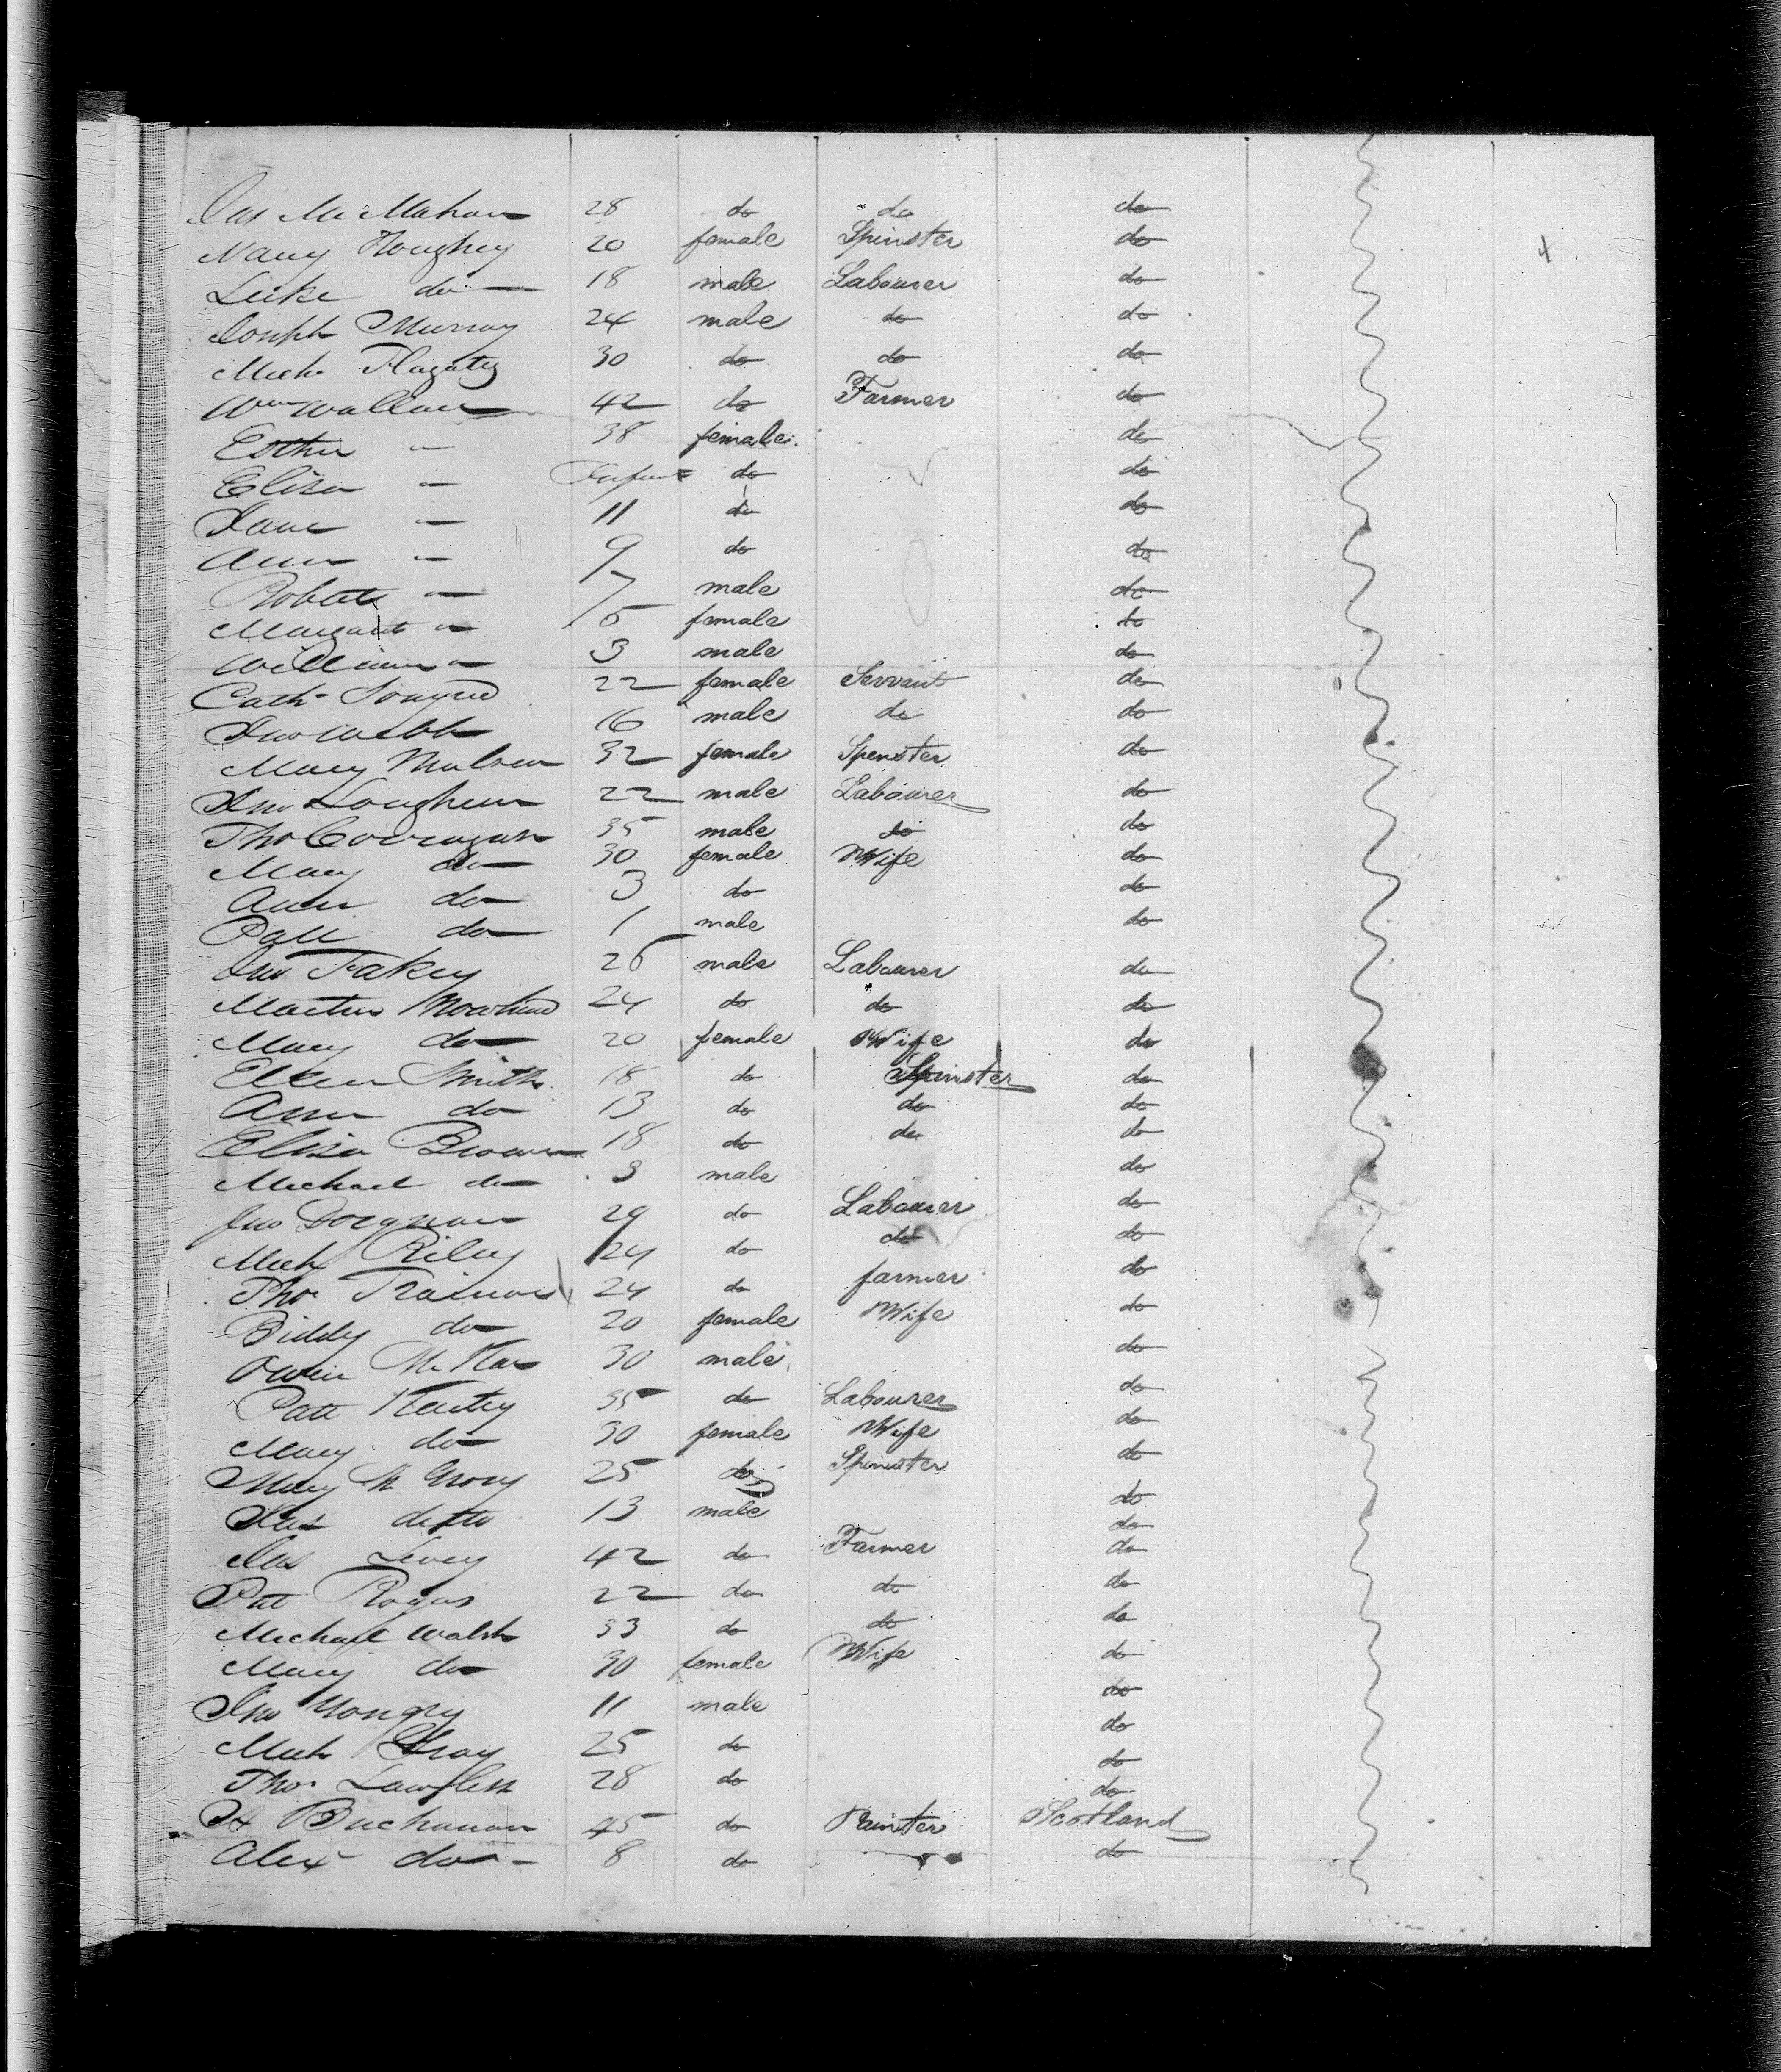 Jas McMahon 28 do do do
Mary Houghey 20 female Spinster do
Luke do 18 male Labourer do
Joseph Murray 24 male do do
Mich 30 do do do
Wm Wallace 42 do Farmer do
Esther " 38 female. do
Eliza " Infant do do
Jane " 11 do do
Ann " 9 do do
Robert " 7 male do
Margaret " 5 female do
William " 3 male do
Cath 22 female Servant do
Jno Webb 16 male do do
Mary 32 female Spinster do
Jno Loughlin 22 male Labourer do
Tho Corrugan 35 male do do
Mary do 30 female Wife do
Ann do 3 do do
Patt do 1 male do
Jno Fahey 26 male Labourer do
Martin Nowland 24 do do do
Mary do 20 female Wife do
Ellen Smith 18 do Spinster do
Ann do 13 do do do
Eliza Brown 18 do do do
Michael do 3 male do
Jno 29 do Labourer do
Mich Riley 24 do do do
Thos Trainor 24 do farmer do
Biddy do 20 female Wife do
Owen 30 male do
Patt 35 do Labourer do
Mary do 30 female Wife do
Mary 25 do Spinster do
Jas ditto 13 male do
do
Jas Levey 42 do Farmer do
Pat Rogers 22 do do do
Michael Walsh 33 do do do
Mary do 30 female Wife do
Jno 11 male do
Mich Gray 25 do do
Thos Lawless 28 do do
do
A Buchanan 45 do Painter Scotland
Alex do - 8 do do
4